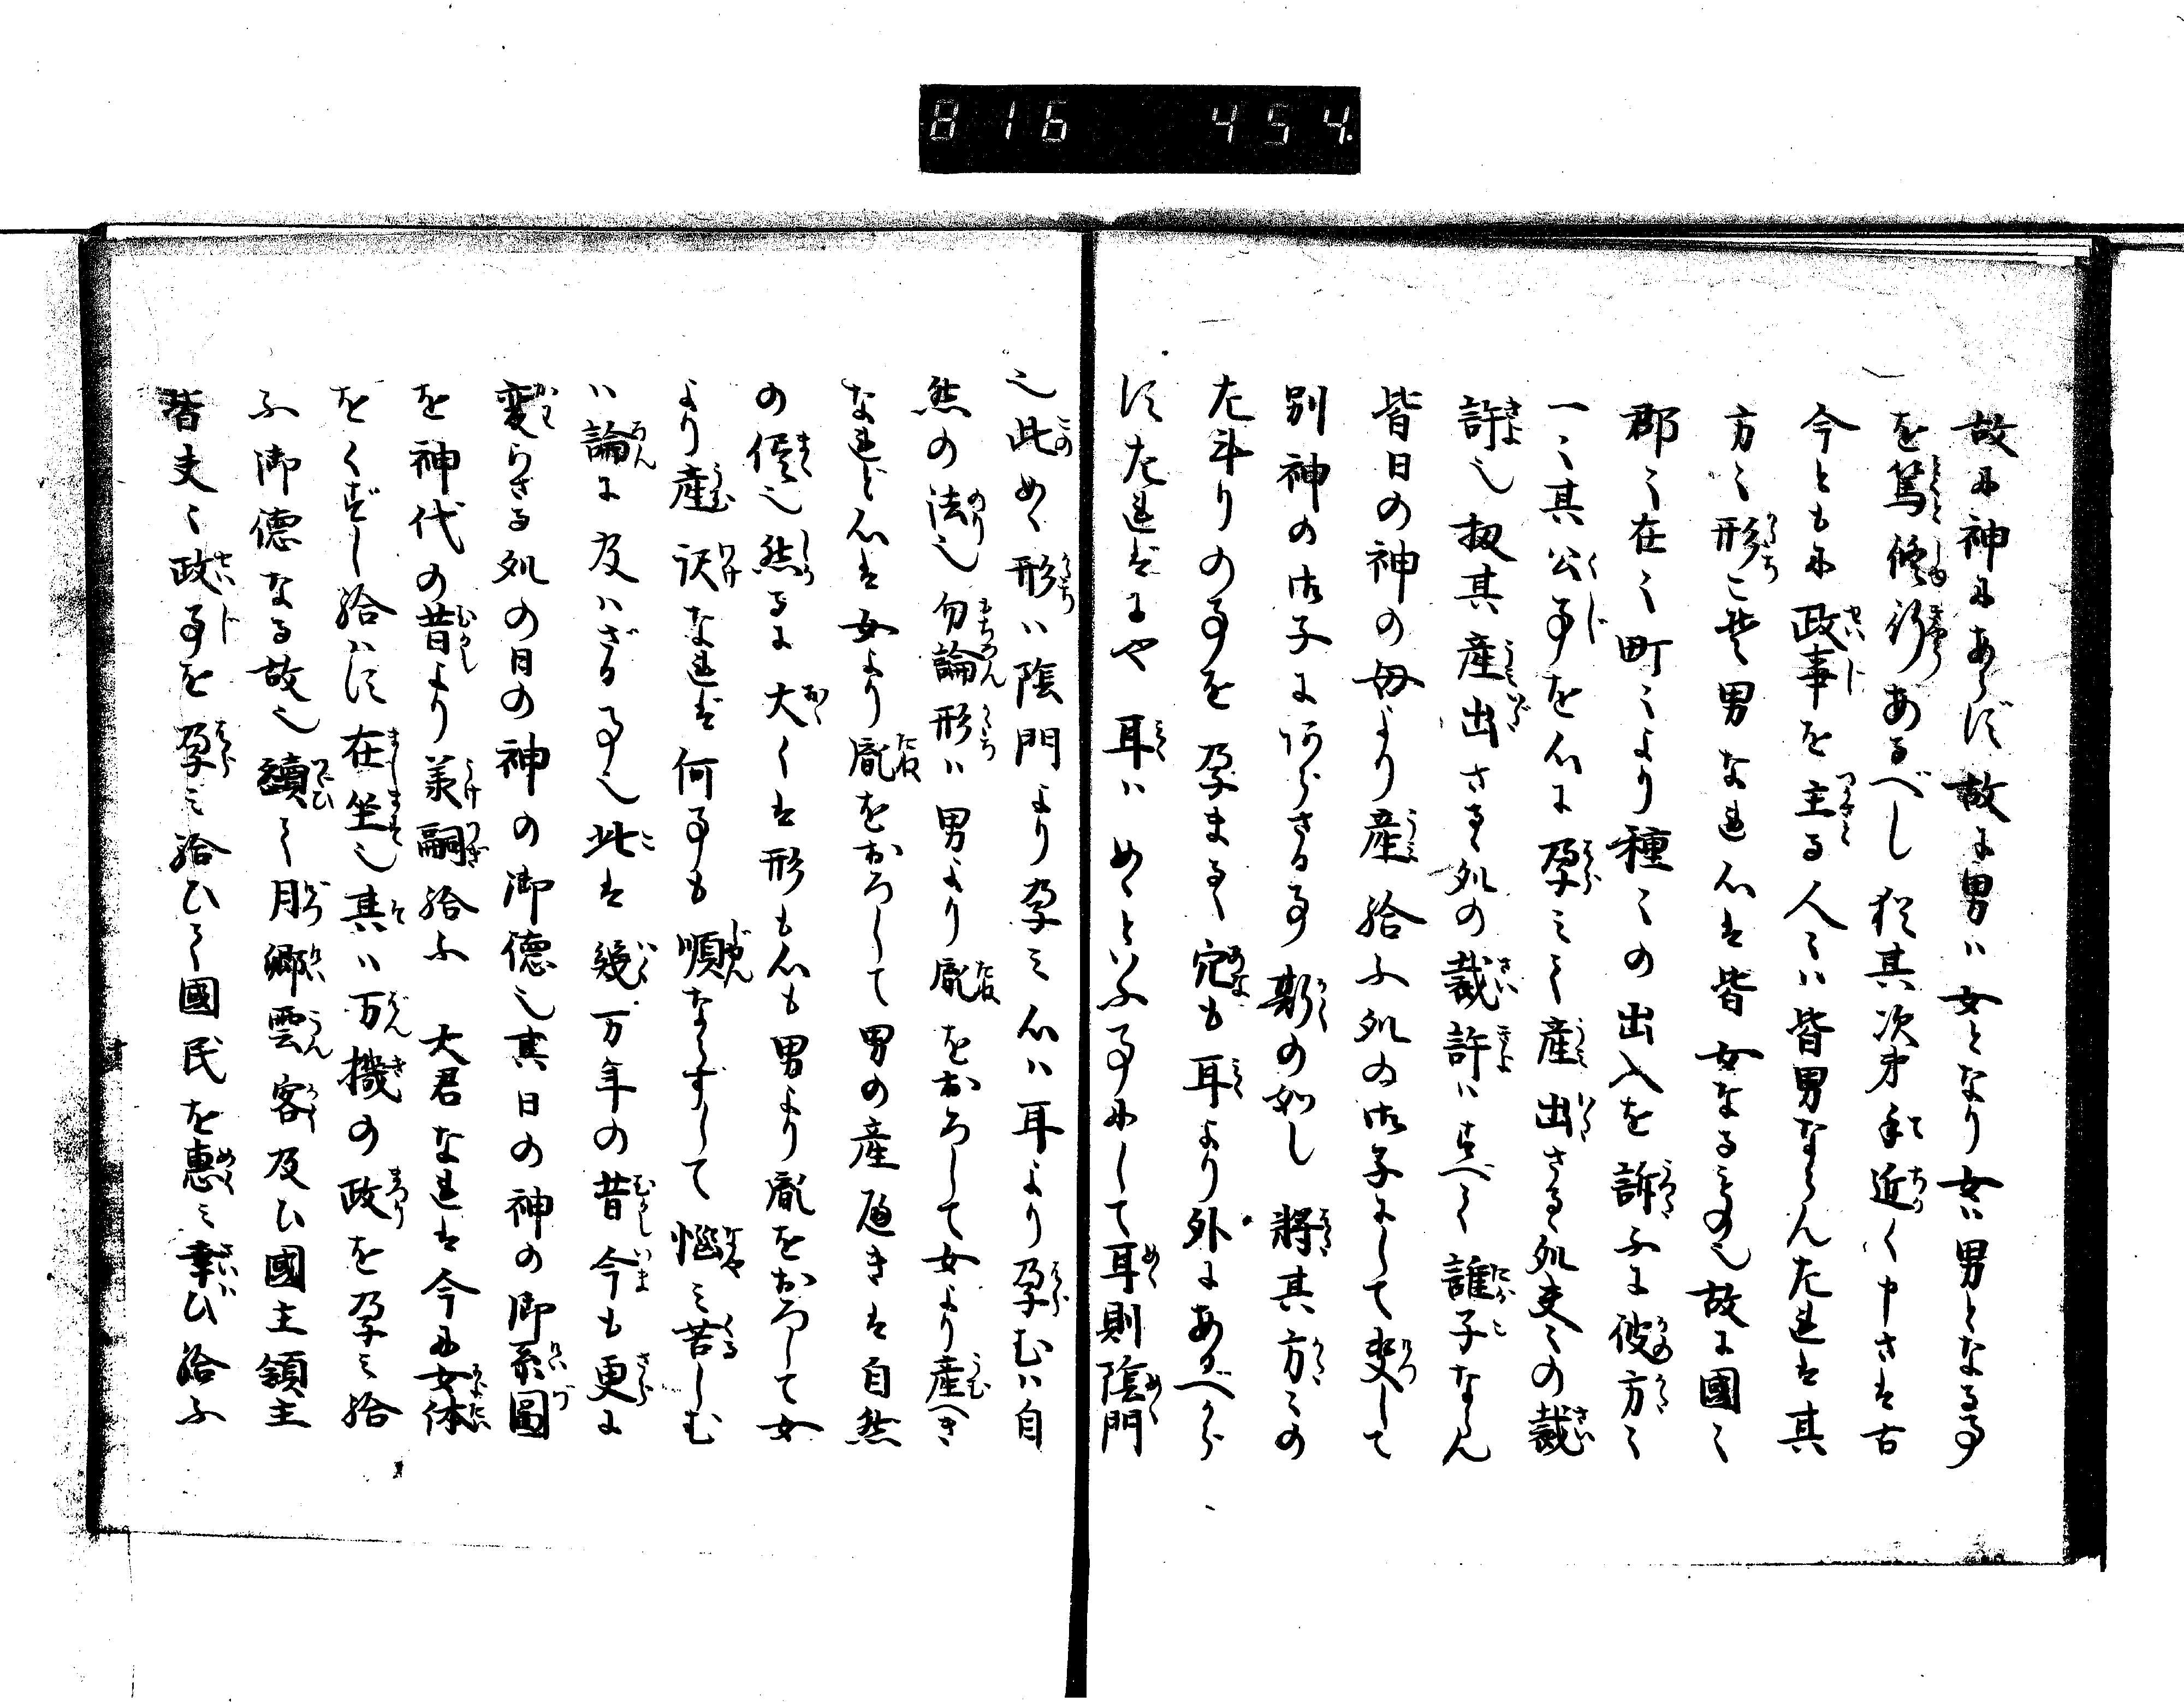 816 454.
故に神にあらず故に男ハ女となり女ハ男となる事
を篤修行あるべし猶其次第手近く申さは古
今ともに政事を主る人々ハ皆男ならんたれは其
方々形こそ男なれ心は皆女なるもの也故に國々
郡々在々町々より種々の出入を訴ふに彼方々
一々其公事を心に孕ミて産出さる処夫々の裁
許也扨其産出さる処の裁許ハすべて誰子ならん
皆日の神の母より産給ふ処の御子にして決して
別神の御子にあらさる事斯の如し将其方々の
た斗りの事を孕まるゝ穴も耳より外にあるべから
ずたればにや耳ハめゝといふ事にして耳則陰門
也此めゝ形ハ陰門より孕ミ心ハ耳より孕むハ自
然の法也勿論形ハ男より胤をおろして女より産へき
なれど心は女より胤をおろして男の産へきは自然
の侭也然るに大くは形も心も男より胤をおろして女
より産訳なれば何事も順ならずして悩ミ苦しむ
ハ論に及ハざる事也此は幾万年の昔今も更に
変らさる処の日の神の御徳也其日の神の御系圖
を神代の昔より羕嗣給ふ 大君なれは今に女体
をくずし給ハず在坐也其ハ万機の政を孕ミ給
ふ御徳なる故也續て月卿雲客及ひ國主領主
皆夫々政事を孕ミ給ひて國民を恵ミ幸ひ給ふ